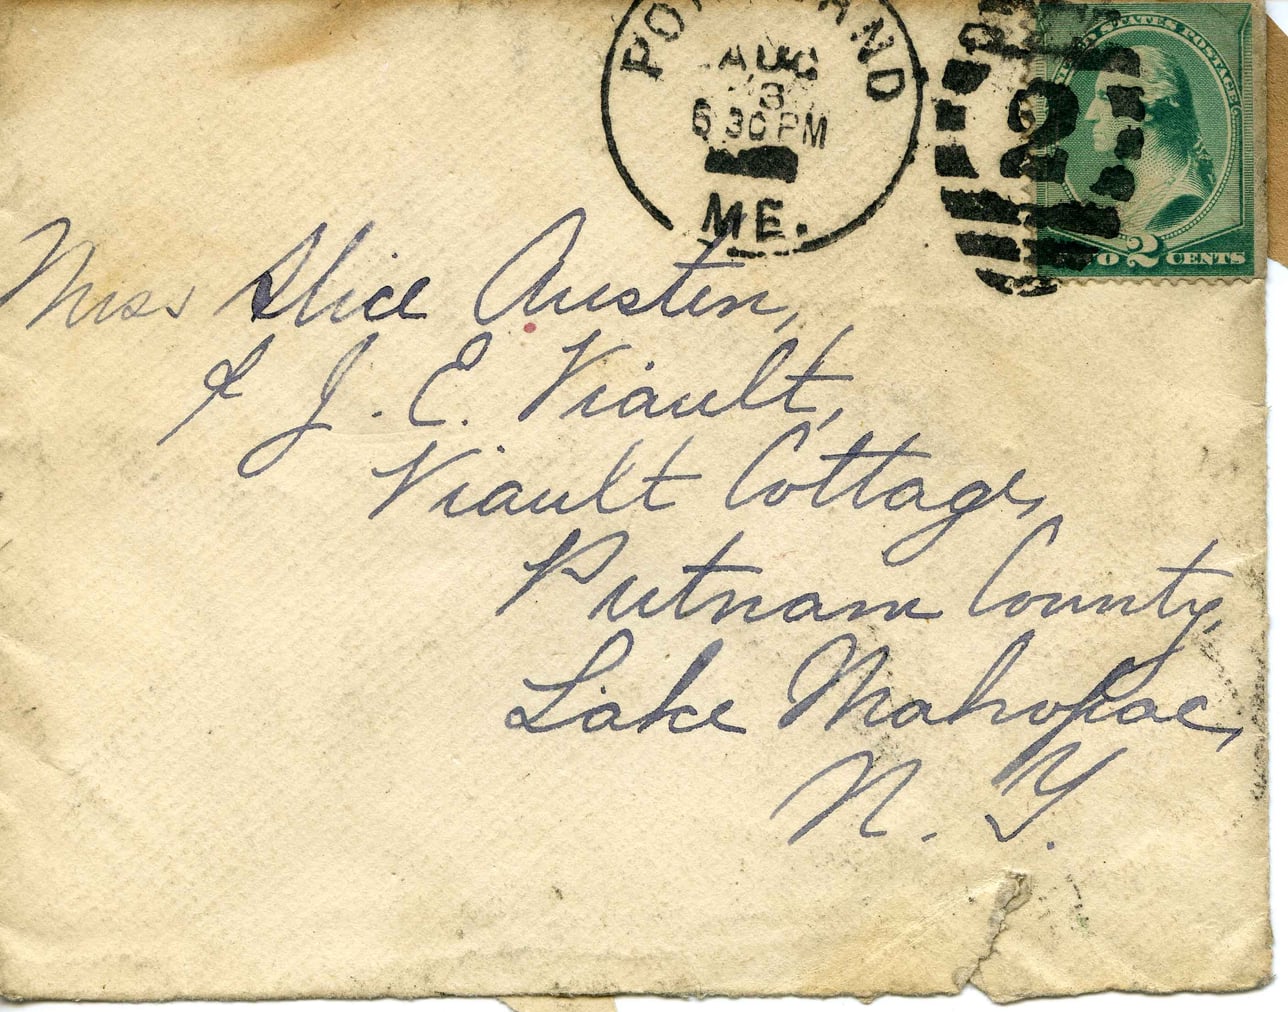 PORTLAND
AUG
6 30 PM
ME.
2
STATES POSTAGE
TWO 2 CENTS
Miss Alice Austen,
c/o J. E. Viault,
Viault Cottage,
Putnam County,
Lake Mahopac,
N. Y.